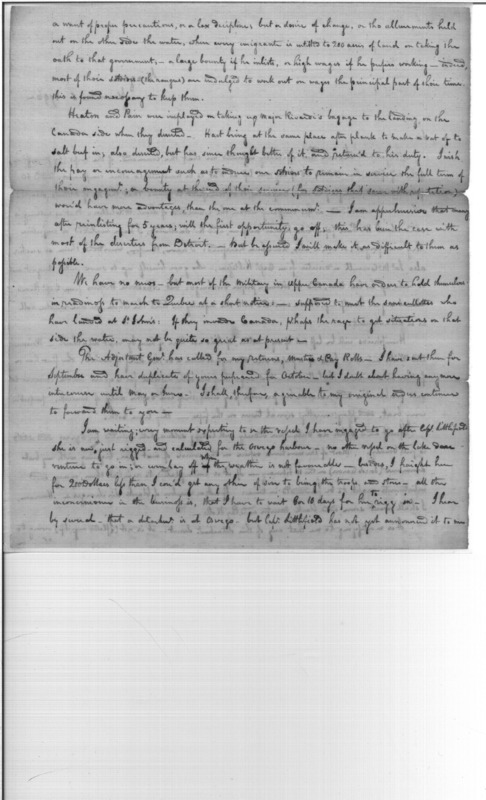 or want of proper precautions, or a lax discipline; but a desire of change, or the allurements held
out on the other side the water, where every emigrant is intitled to 200 acres of land on taking the
oath to that government, - a large bounty if he inlists, or high wages if he prefers working -
most of their soldiers are indulged to work out on wages the principal part of their time.
this is found necessary to keep them.
Heaton and were imployed in taking up major bagage to the landing on the
Canadian side when they deserted - Hart being at the same place after plank to make a vat of to
salt beef in, also deserted, but has since thought better of it, and return'd to his duty. I wish
the pay or incouragement such as to induce our soldiers to remain in service the full term of
their engagemt, a bounty at the end of their service (for soldiers that serve with reputation)
would have more advantages, than the one at the commencemt. - I am apprehensive that many
after reinlisting for 5 years, will the first opportunity, go off; this has been the case with
most of the deserters from Detroit, - but be assured I will make it as difficult to them as
possible.
We have no news - but most of the military in upper Canada have orders to hold themselves
in readiness to march to Quebec at a short notice; - supposed to meet the sansculottes who
have landed at St Johns: If they invade Canada, perhaps the rage to get situations on that
side the water, may not be quite so great as at present -
The Adjutant Genl has called for my returns, Muster & Pay Rolls - I have sent them for
September and have duplicates of yours prepared for October - but I doubt about having any more
conveyance until may or June. I shall, therefore, agreeable to my original orders continue
to forward them to you -
I am waiting, every moment expecting to on the vessel I have engaged to go after Capt Littlefield
she is new, just rigged and calculated for the Oswego harbour - no other vessel on the lake dare
venture to go in; or even lay off if when the weather is not favourable - besides, I freight him
for 200 Dollars less than I could get any other of size to bring the troops and stores - all the
inconvenience in the business is, that I have to wait 8 or 10 days for her to rigg on - I hear
by that a detachmt is at Oswego. but Capt Littlefield has not yet announced it to me